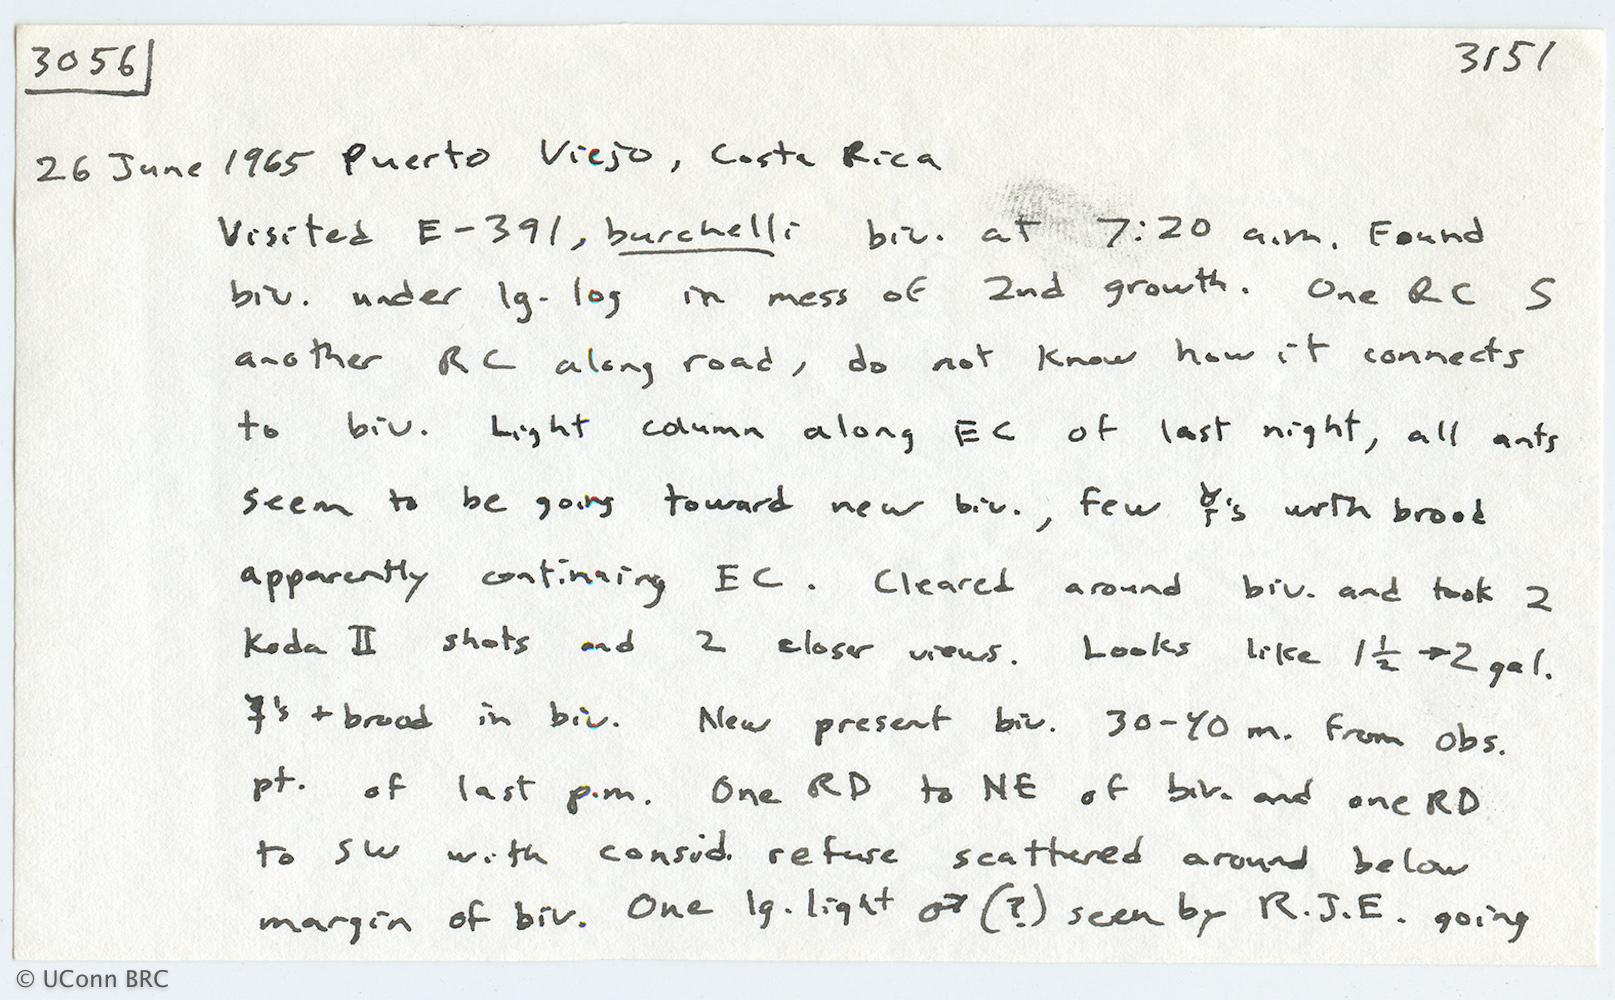 3056 3151
26 June 1965 Puerto Viejo, Costa Rica
Visited E-391, burchelli biv. at 7:20 a.m. Found
biv. under lg. log in mess of 2nd growth. One RC S
another RC along road, do not know how it connects
to biv. Light column along EC of last night, all ants
seem to be going toward new biv., few ☿'s with brood
apparently continuing EC. Cleared around biv. and took 2
Koda II shots and 2 closer views. Looks like 1½ → 2 gal.
☿'s + brood in biv. New present biv. 30-40 m. from obs.
pt. of last p.m. One RD to NE of biv. and one RD
to SW with consid. refuse scattered around below
margin of biv. One lg. light ♂ (?) seen by R.J.E. going
© UConn BRC